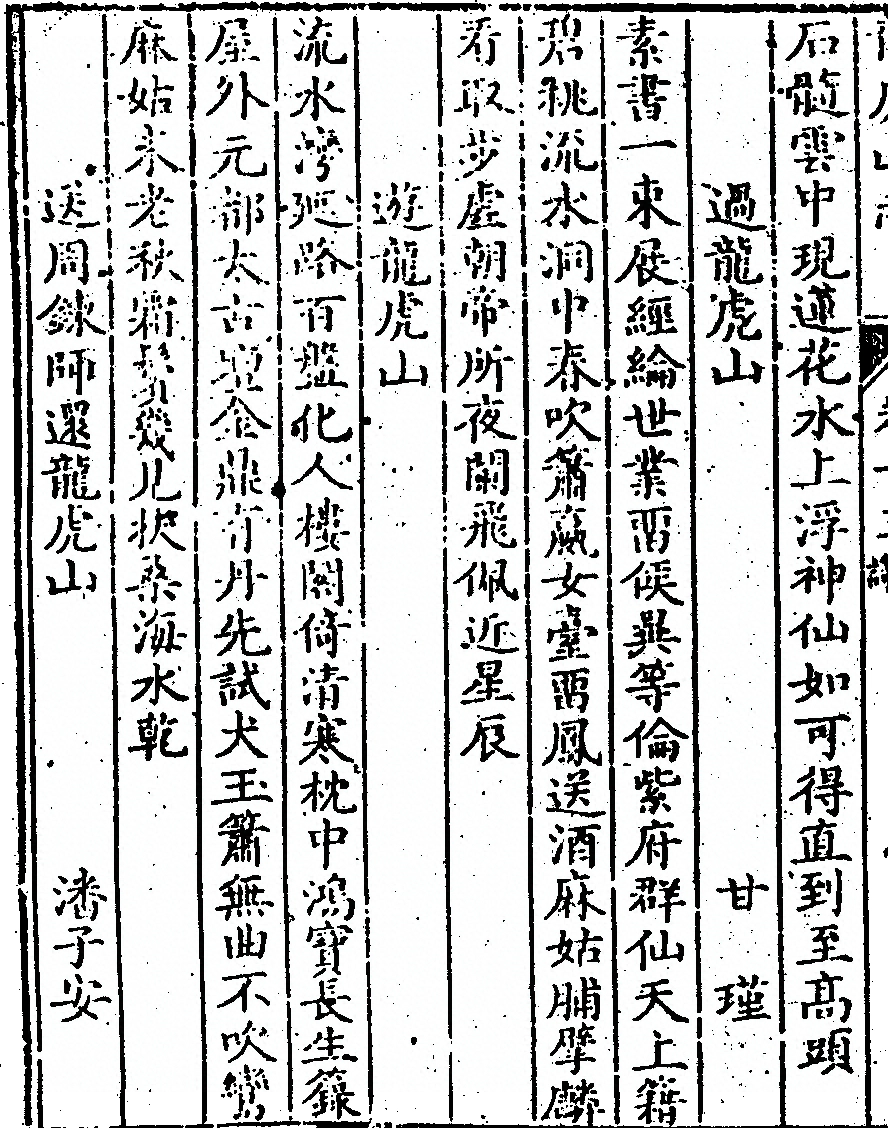 石髓雲中現蓮花水上浮神仙如可得直到至高頭
過龍虎山 甘 瑾
素書一束展經綸世業畱侯異等倫紫府群仙天上籍
碧桃流水洞中春吹簫嬴女臺畱鳳送酒麻姑脯擘麟
看取步虛朝帝所夜闌飛佩近星辰
遊龍虎山
流水灣廻路百盤化人樓閣倚清寒枕中鴻寶長生籙
屋外元都太古壇金鼎有丹先試犬玉簫無曲不吹鸞
麻姑未老秋霜鬢幾見扶桑海水乾
送周鍊師還龍虎山 潘子安